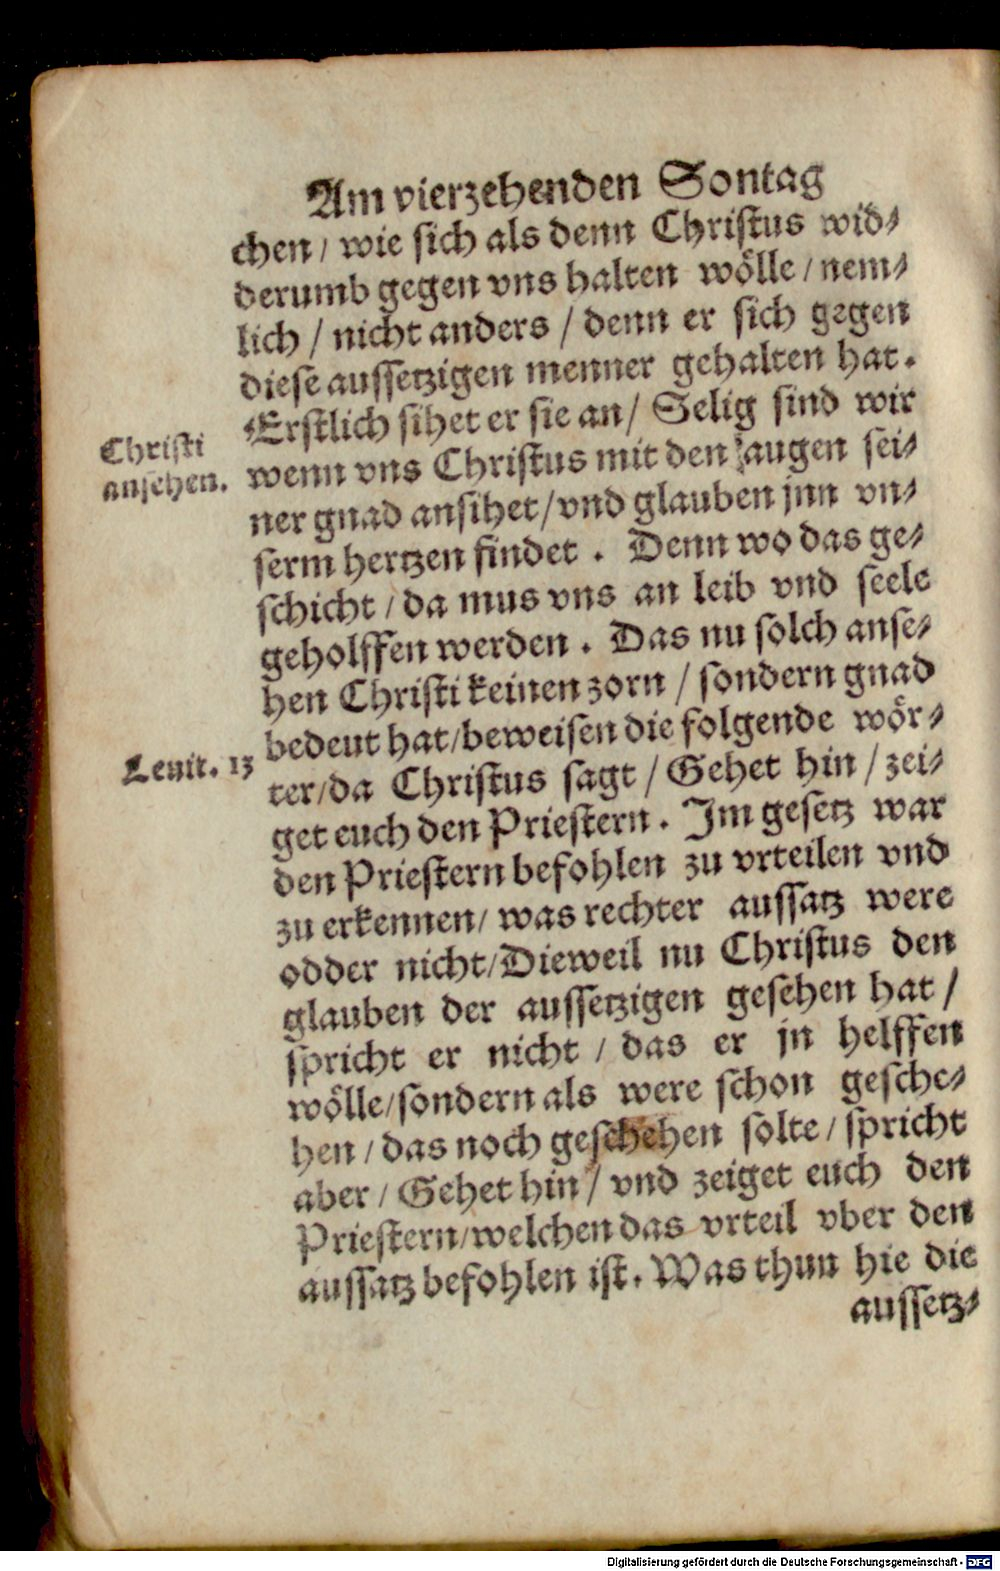 Am vierzehenden Sontag
chen / wie sich als denn Christus wid⸗
derumb gegen vns halten wölle / nem⸗
lich / nicht anders / denn er sich gegen
diese aussetzigen menner gehalten hat.
Erstlich sihet er sie an / Selig sind wir
Christi
ansehen.
wenn vns Christus mit den augen sei⸗
ner gnad ansihet / vnd glauben jnn vn⸗
serm hertzen findet . Denn wo das ge⸗
schicht / da mus vns an leib vnd seele
geholffen werden . Das nu solch anse⸗
hen Christi keinen zorn / sondern gnad
bedeut hat / beweisen die folgende wör⸗
Leuit. 13
ter / da Christus sagt / Gehet hin / zei⸗
get euch den Priestern . Im gesetz war
den Priestern befohlen zu vrteilen vnd
zu erkennen / was rechter aussatz were
odder nicht / Dieweil nu Christus den
glauben der aussetzigen gesehen hat /
spricht er nicht / das er jn helffen
wölle / sondern als were schon gesche⸗
hen / das noch geschehen solte / spricht
aber / Gehet hin / vnd zeiget euch den
Priestern / welchen das vrteil vber den
aussatz befohlen ist. Was thun hie die
aussetz⸗
Digitalisierung gefördert durch die Deutsche Forschungsgemeinschaft - DFG